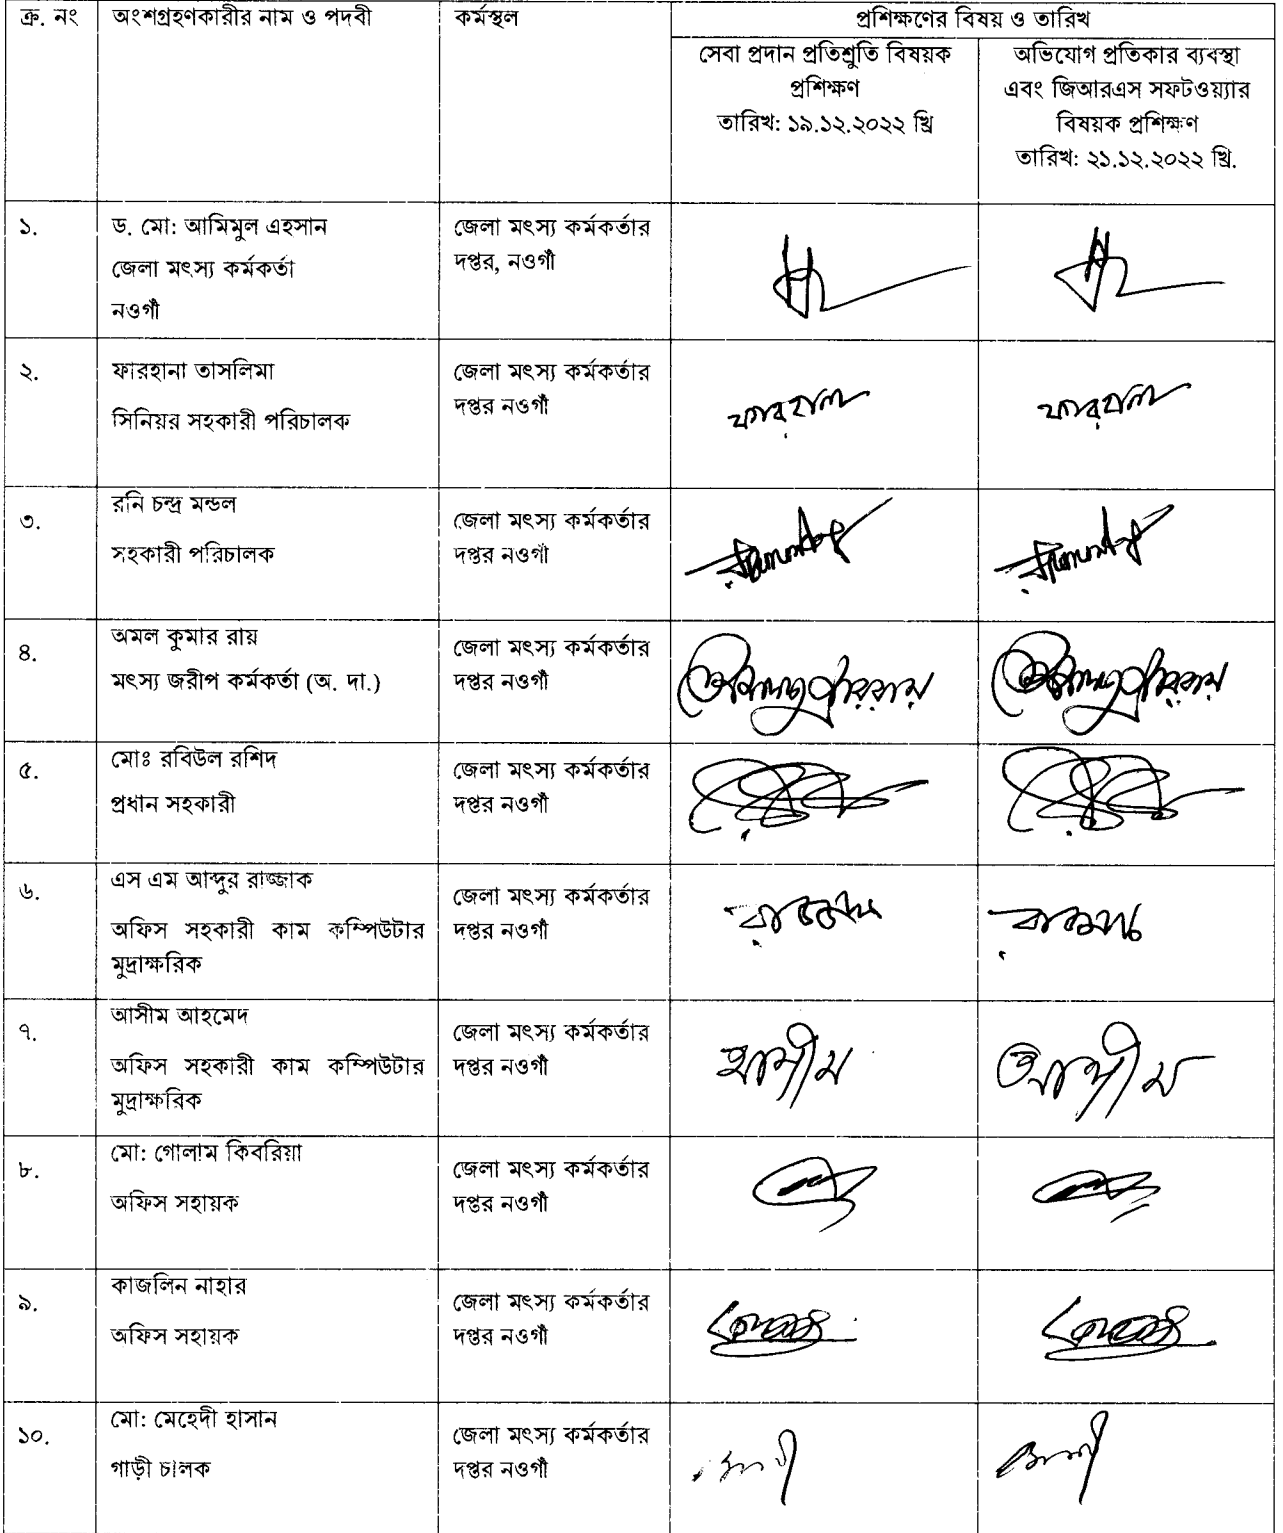 ক্র. নং অংশগ্রহণকারীর নাম ও পদবী কর্মস্থল প্রশিক্ষণের বিষয় ও তারিখ
সেবা প্রদান প্রতিশ্রুতি বিষয়ক
প্রশিক্ষণ
তারিখ: ১৯.১২.২০২২ খ্রি
অভিযোগ প্রতিকার ব্যবস্থা
এবং জিআরএস সফটওয়্যার
বিষয়ক প্রশিক্ষণ
তারিখ: ২১.১২.২০২২ খ্রি.
১.
ড. মো: আমিমুল এহসান
জেলা মৎস্য কর্মকর্তা
নওগাঁ
জেলা মৎস্য কর্মকর্তার
দপ্তর, নওগাঁ
২.
ফারহানা তাসলিমা
সিনিয়র সহকারী পরিচালক
জেলা মৎস্য কর্মকর্তার
দপ্তর নওগাঁ
ফারহানা
ফারহানা
৩.
রনি চন্দ্র মন্ডল
সহকারী পরিচালক
জেলা মৎস্য কর্মকর্তার
দপ্তর নওগাঁ
৪.
অমল কুমার রায়
মৎস্য জরীপ কর্মকর্তা (অ. দা.)
জেলা মৎস্য কর্মকর্তার
দপ্তর নওগাঁ
৫.
মোঃ রবিউল রশিদ
প্রধান সহকারী
জেলা মৎস্য কর্মকর্তার
দপ্তর নওগাঁ
৬.
এস এম আব্দুর রাজ্জাক
অফিস সহকারী কাম কম্পিউটার
মুদ্রাক্ষরিক
জেলা মৎস্য কর্মকর্তার
দপ্তর নওগাঁ
৭.
আসীম আহমেদ
অফিস সহকারী কাম কম্পিউটার
মুদ্রাক্ষরিক
জেলা মৎস্য কর্মকর্তার
দপ্তর নওগাঁ
আসীম
আসীম
৮.
মো: গোলাম কিবরিয়া
অফিস সহায়ক
জেলা মৎস্য কর্মকর্তার
দপ্তর নওগাঁ
৯.
কাজলিন নাহার
অফিস সহায়ক
জেলা মৎস্য কর্মকর্তার
দপ্তর নওগাঁ
১০.
মো: মেহেদী হাসান
গাড়ী চালক
জেলা মৎস্য কর্মকর্তার
দপ্তর নওগাঁ